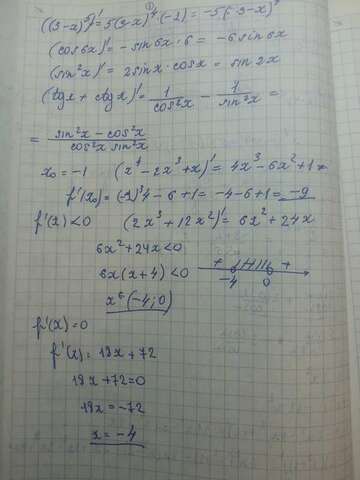 ((3-x)⁵)' = 5(3-x)⁴(-1) = -5(3-x)⁴
(cos6x)' = -sin6x·6 = -6sin6x
(sin²x)' = 2sinx·cosx = sin2x
(tgx + ctgx)' = 1/cos²x - 1/sin²x =
= (sin²x - cos²x)/(cos²x sin²x)
x₀ = -1 (x⁴ - 2x³ + x)' = 4x³ - 6x² + 1
f'(x₀) = (-1)³4 - 6 + 1 = -4 - 6 + 1 = -9
f'(x) < 0 (2x³ + 12x²)' = 6x² + 24x
6x² + 24x < 0
6x(x + 4) < 0 + - +
-4 0
x ∈ (-4; 0)
f'(x) = 0
f'(x) = 18x + 72
18x + 72 = 0
18x = -72
x = -4